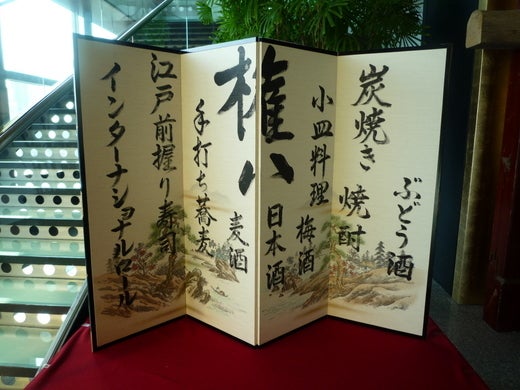 ぶどう酒
炭焼き
焼酎
小皿料理
梅酒
日本酒
権八
麦酒
手打ち蕎麦
江戸前握り寿司
インターナショナルロール